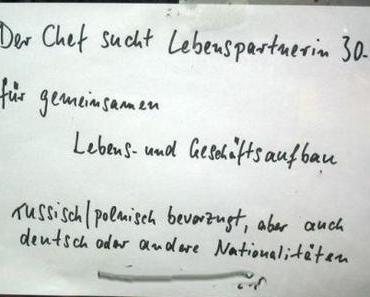 Der Chef sucht Lebenspartnerin 30-
für gemeinsamen
Lebens- und Geschäftsaufbau
russisch/polnisch bevorzugt, aber auch
deutsch oder andere Nationalitäten